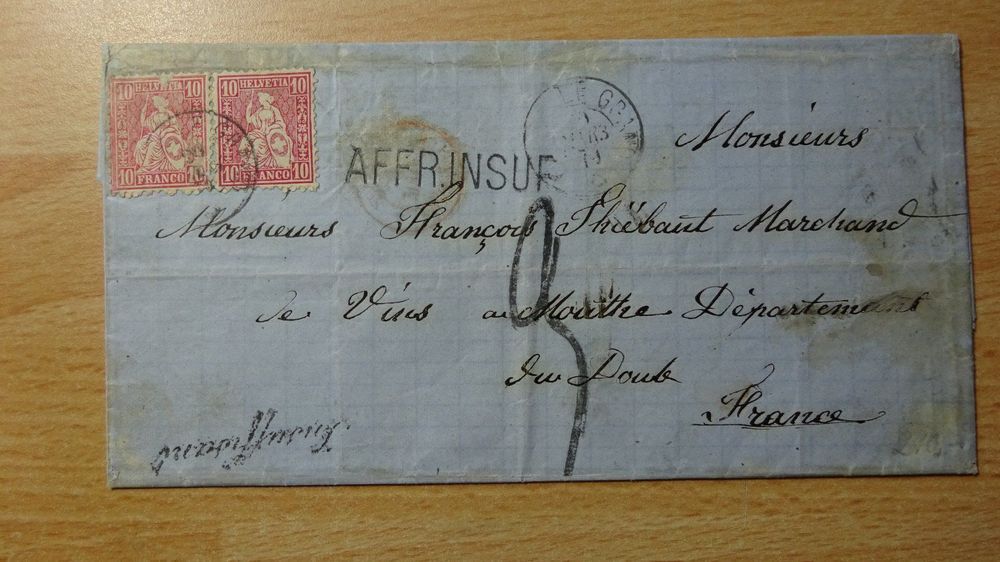 10 HELVETIA 10
10 FRANCO 10
10 HELVETIA 10
10 FRANCO 10
AFFR. INSUF
MARS
Monsieur
Monsieurs François Thiébaut Marchand
de Vins a Mouthe Département
du Doub
France
Insuffisant